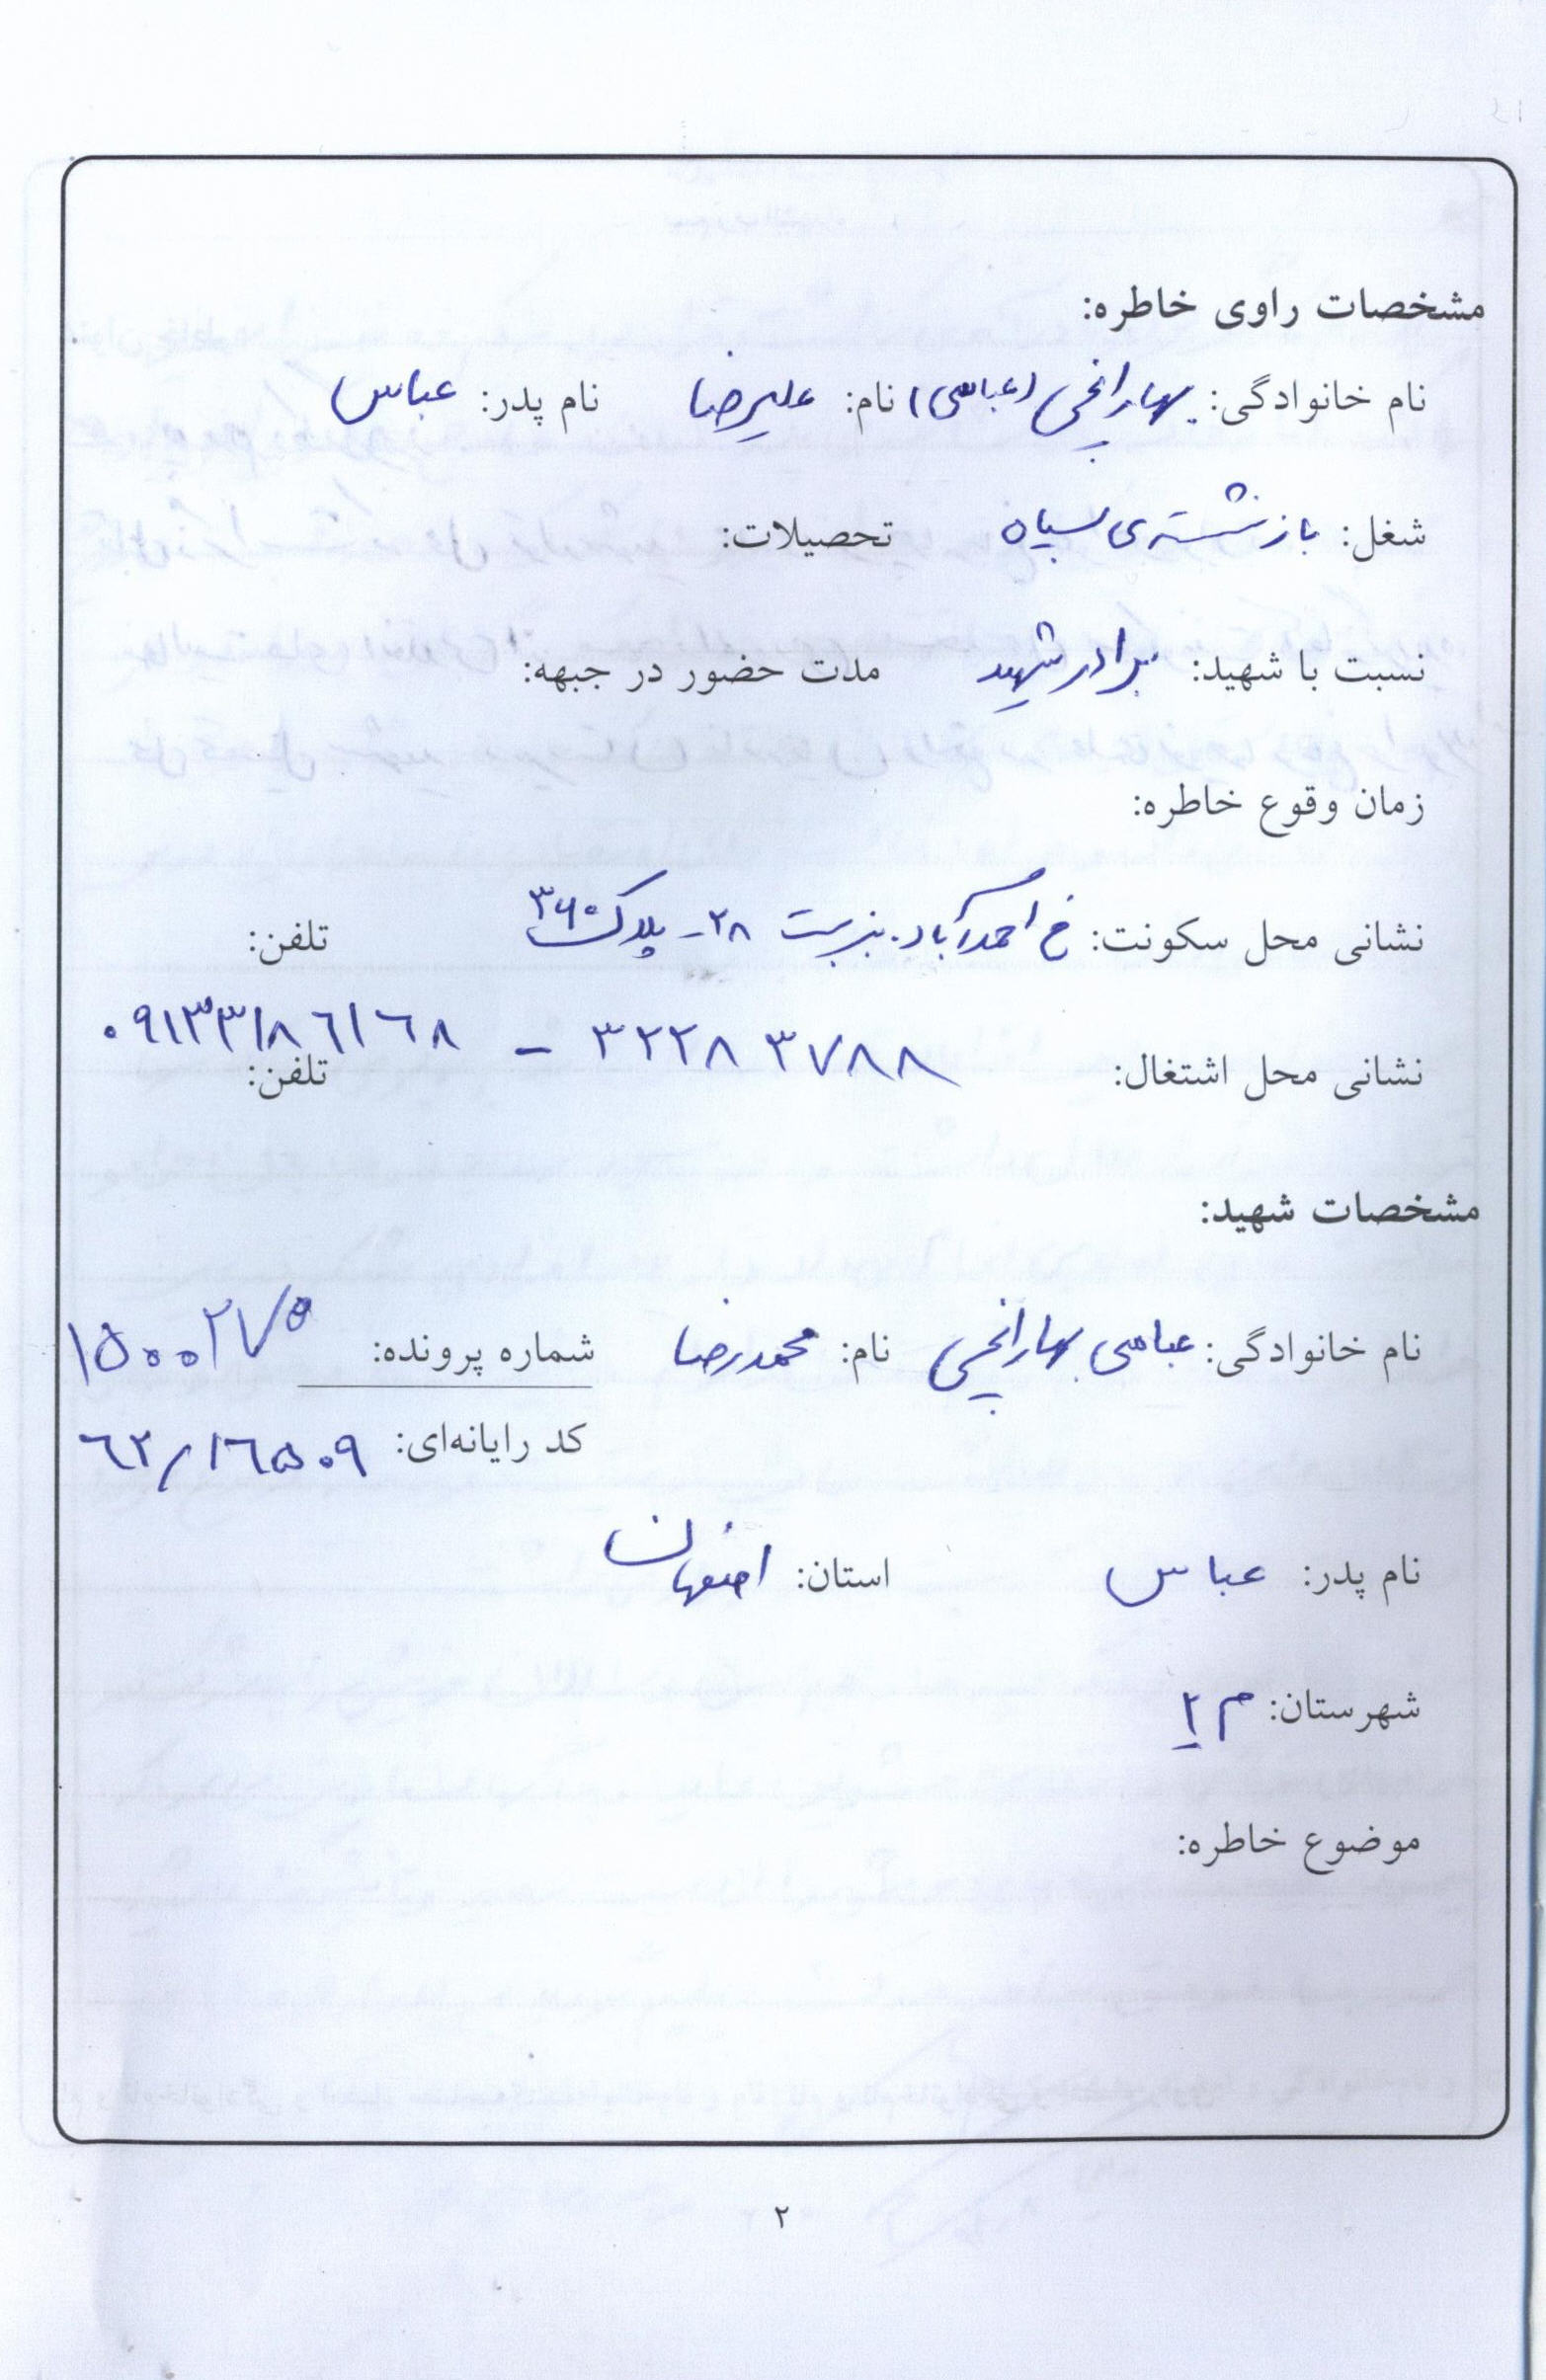 مشخصات راوی خاطره:
نام خانوادگی: بهارانچی (عباسی) نام: علیرضا نام پدر: عباس
شغل: بازنشسته‌ی سپاه تحصیلات:
نسبت با شهید: برادر شهید مدت حضور در جبهه:
زمان وقوع خاطره:
نشانی محل سکونت: خ احمدآباد. بن بست ۲۸ - پلاک ۳۶۰ تلفن:
۰۹۱۳۳۱۸۶۱۶۸ - ۳۲۲۸۳۷۸۸
نشانی محل اشتغال: تلفن:
مشخصات شهید:
نام خانوادگی: عباسی بهارانچی نام: محمدرضا شماره پرونده: ۱۵۰۰۲۷۵
کد رایانه‌ای: ۶۲/۱۶۵۰۹
نام پدر: عباس استان: اصفهان
شهرستان: م ۲
موضوع خاطره:
۲